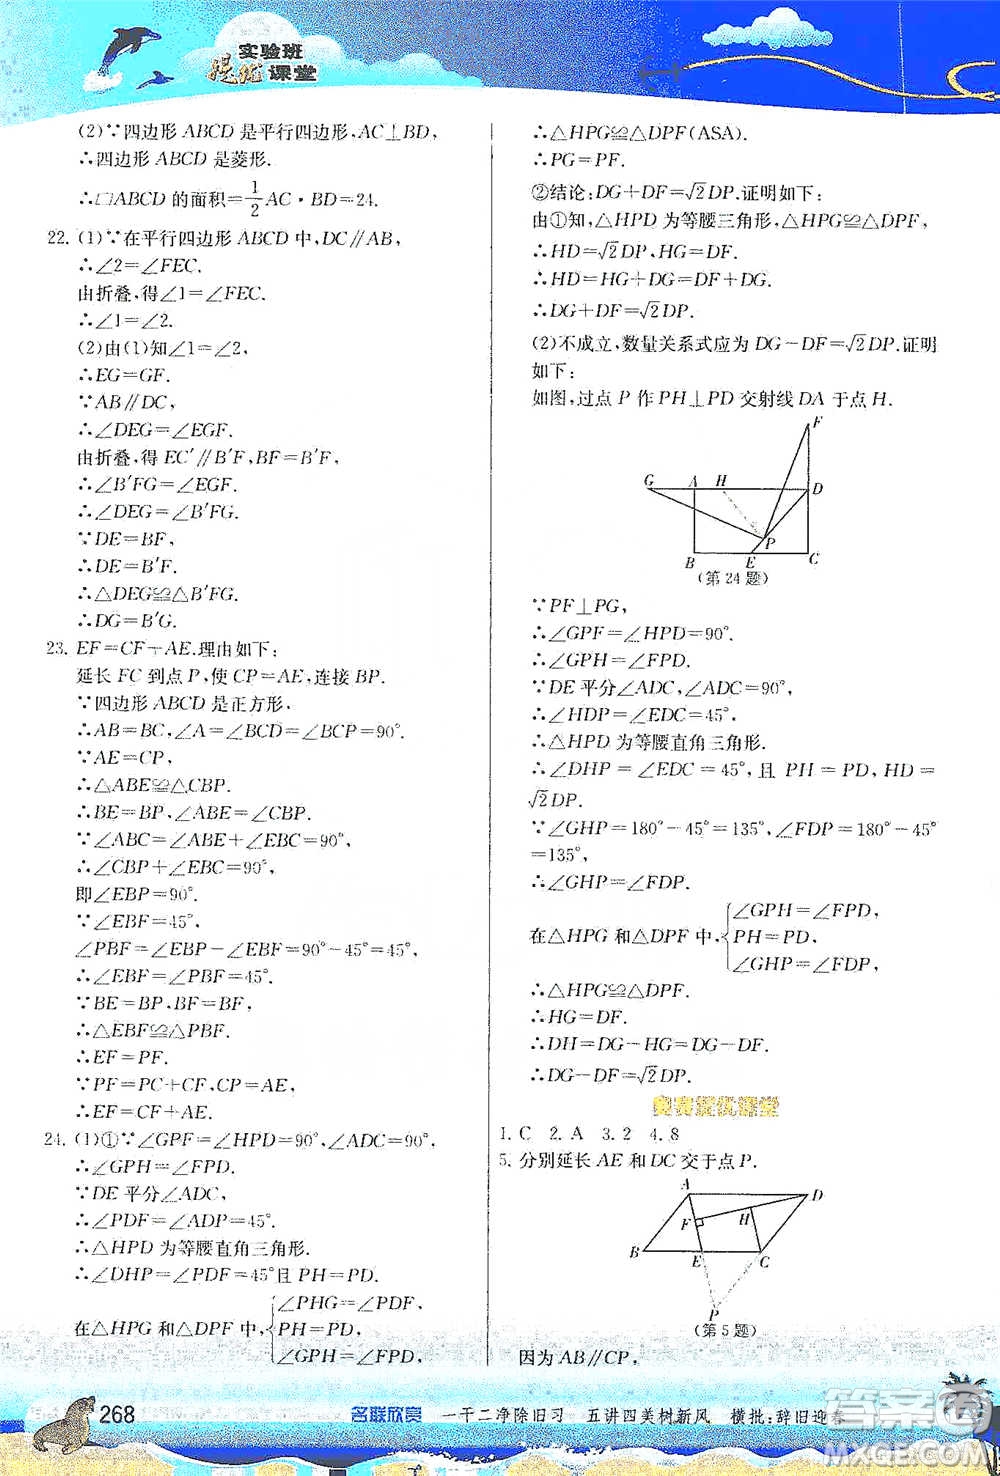 实验班
提优课堂
(2)∵四边形ABCD是平行四边形,AC⊥BD,
∴四边形ABCD是菱形.
∴□ABCD的面积=1/2 AC·BD=24.
22. (1)∵在平行四边形ABCD中,DC∥AB,
∴∠2=∠FEC.
由折叠,得∠1=∠FEC.
∴∠1=∠2.
(2)由(1)知∠1=∠2,
∴EG=GF.
∵AB∥DC,
∴∠DEG=∠EGF.
由折叠,得EC′∥B′F,BF=B′F,
∴∠B′FG=∠EGF.
∴∠DEG=∠B′FG.
∵DE=BF,
∴DE=B′F.
∴△DEG≌△B′FG.
∴DG=B′G.
23. EF=CF+AE.理由如下:
延长FC到点P,使CP=AE,连接BP.
∵四边形ABCD是正方形,
∴AB=BC,∠A=∠BCD=∠BCP=90°.
∵AE=CP,
∴△ABE≌△CBP.
∴BE=BP,∠ABE=∠CBP.
∵∠ABC=∠ABE+∠EBC=90°,
∴∠CBP+∠EBC=90°,
即∠EBP=90°.
∵∠EBF=45°,
∠PBF=∠EBP-∠EBF=90°-45°=45°,
∴∠EBF=∠PBF=45°.
∵BE=BP,BF=BF,
∴△EBF≌△PBF.
∴EF=PF.
∵PF=PC+CF,CP=AE,
∴EF=CF+AE.
24. (1)①∵∠GPF=∠HPD=90°,∠ADC=90°,
∴∠GPH=∠FPD.
∵DE平分∠ADC,
∴∠PDF=∠ADP=45°.
∴△HPD为等腰直角三角形.
∴∠DHP=∠PDF=45°且PH=PD.
在△HPG和△DPF中,
∠PHG=∠PDF,
PH=PD,
∠GPH=∠FPD,
∴△HPG≌△DPF(ASA).
∴PG=PF.
②结论:DG+DF=√2DP.证明如下:
由①知,△HPD为等腰三角形,△HPG≌△DPF,
∴HD=√2DP,HG=DF.
∴HD=HG+DG=DF+DG.
∴DG+DF=√2DP.
(2)不成立,数量关系式应为DG-DF=√2DP.证明
如下:
如图,过点P作PH⊥PD交射线DA于点H.
F
G A H D
P
B E C
(第24题)
∵PF⊥PG,
∴∠GPF=∠HPD=90°.
∴∠GPH=∠FPD.
∵DE平分∠ADC,∠ADC=90°,
∴∠HDP=∠EDC=45°.
∴△HPD为等腰直角三角形.
∴∠DHP=∠EDC=45°,且PH=PD,HD=
√2DP.
∵∠GHP=180°-45°=135°,∠FDP=180°-45°
=135°,
∴∠GHP=∠FDP.
在△HPG和△DPF中,
∠GPH=∠FPD,
PH=PD,
∠GHP=∠FDP,
∴△HPG≌△DPF.
∴HG=DF.
∴DH=DG-HG=DG-DF.
∴DG-DF=√2DP.
奥赛提优课堂
1. C 2. A 3. 2 4. 8
5. 分别延长AE和DC交于点P.
A D
F H
B E C
P
(第5题)
因为AB∥CP,
268
名联欣赏 一干二净除旧习 五讲四美树新风 横批:辞旧迎春
答案
MXQE.COM